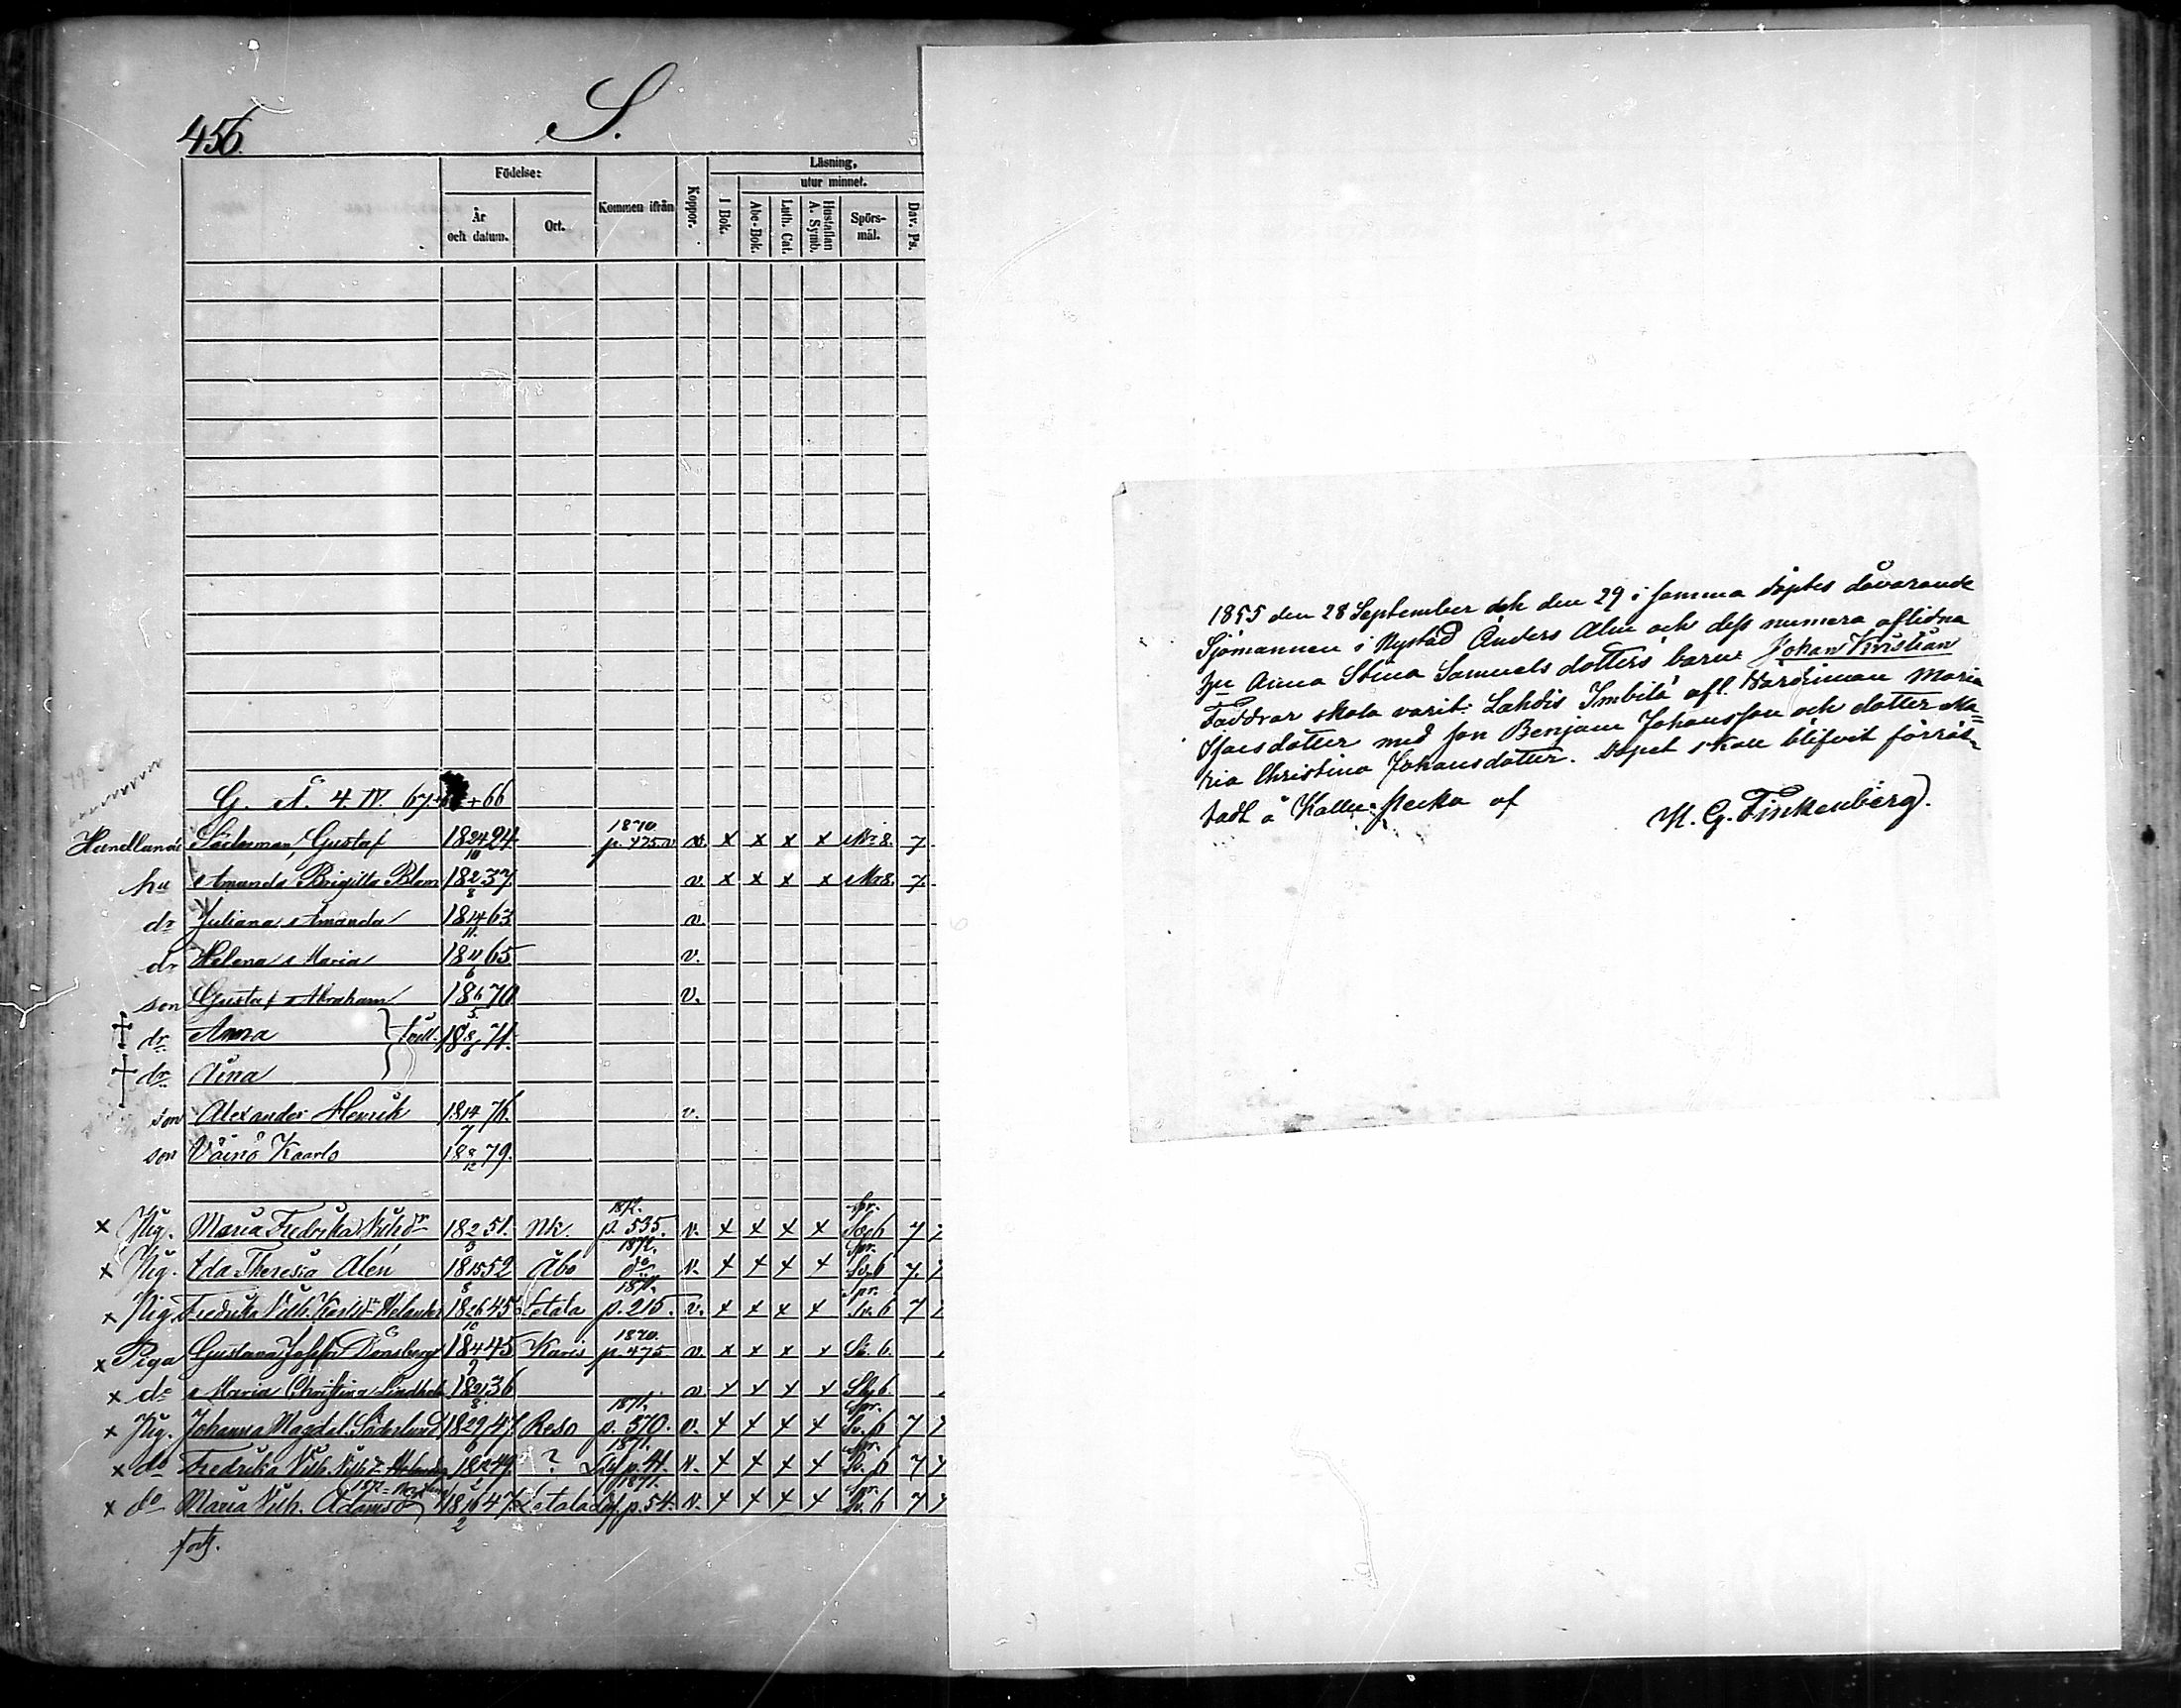 456.
S.
Födelse:
År och datum.
Ort.
Kommen ifrån
Koppor.
Läsning,
utur minnet.
I Bok.
Abc-Bok.
Luth. Cat.
Hustaflan A. Symb.
Spörs-mål.
Dav. Ps.
G. A. 4. IV. 67 + 66
Söderman, Gustaf 18 24/10 24 1870. p. 475 v. x x x x 8. 7
hu Amanda Brigitta Blom 18 2/8 37. v. x x x x 8. 7.
dr Juliana Amanda 18 14/11 63 v.
dr Helena Maria 18 11/6 65 v.
son Gustaf Abraham 18 6/5 70 v.
† dr Anna } tvill. 18 8/6 71.
† dr Aina
son Alexander Henrik 18 14/7 76. v.
son Väinö Kaarlo 18 8/12 79.
x Pig. Maria Fredrika 18 2/3 51. Nk. p. 535. v. x x x x 7
x Pig. Ida Theresia Alén 18 15/8 52 Åbo do v. x x x x 7.
x Pig. Fredrika Vilh. 18 26/10 45 Letala p. 215. v. x x x x 7
x Piga Gustava Josefa 18 4/9 45 Karis 1870. p. 475 v. x x x x 6.
x do Maria Christina Lindholm 18 21/8 36 v. x x x x
x Pig. Johanna Magdal. Söderlund 18 29/6 47. Reso 1871. p. 570. v. x x x x 7 7
x do Fredrika Vilh. 49. ? 1871. p. 41. v. x x x x 7 7
x do Maria Vilh. Adamsd 18 16/2 47. Letala 1871. p. 54. v. x x x x 7 7
forts.
1855 den 28 September och den 29 i samma döptes dåvarande
Sjömannen i Nystad Anders Alin och dess numera aflidna
hu Anna Stina Samuels dotters barn: Johan Kristian
Faddrar skola varit: Lahdis Imbilä afl. Nordiman Maria
Isacsdotter med son Benjam Johansson och dotter Ma=
ria Christina Johansdotter. Dopet skall blifvit förrät=
tadt å Kallu-backa af
K. G. Finkenberg.